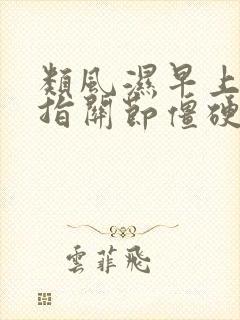 類風濕早上
指關節僵硬
雲菲飛